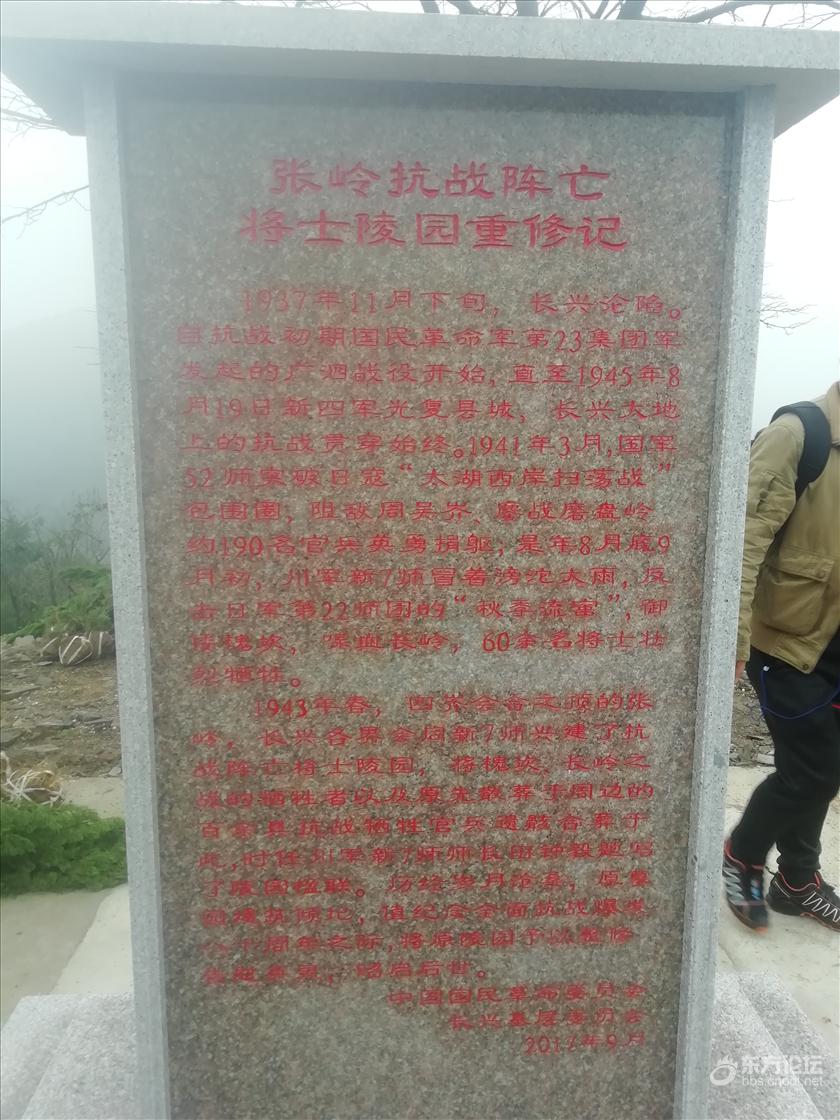 张岭抗战阵亡
将士陵园重修记
1937年11月下旬，长兴沦陷。
自抗战初期国民革命军第23集团军
发起的广泗战役开始，直至1945年8
月19日新四军光复县城，长兴大地
上的抗战贯穿始终。1941年3月，国军
52师突破日寇“太湖西岸扫荡战”
包围圈，阻敌周吴岕、鏖战磨盘岭
约190名官兵英勇捐躯，是年8月底9
月初，川军新7师冒着滂沱大雨，反
击日军第22师团的“秋季流窜”，御
槐坎，喋血长岭，60余名将士壮
烈牺牲。
1943年春，四界会合之顶的张
岭，长兴各界会同新7师兴建了抗
战阵亡将士陵园，将槐坎、长岭之
战的牺牲者以及原先散葬于周边的
百余具抗战牺牲官兵遗骸合葬于
此，时任川军新7师师长田钟毅题写
了陵园楹联。历经岁月沧桑，原墓
园建筑倾圮，值纪念全面抗战爆发
八十周年之际，将原陵园予以整修
，昭启后世。
中国国民革命委员会
长兴基层委员会
2017年9月
东方论坛
bbs.cnool.net